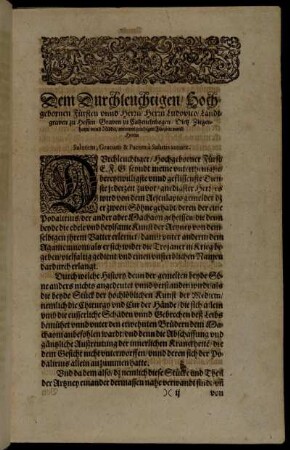 Dem Durchleuchtigen Hoch-
gebornen Fürsten vnnd Herrn Herrn Ludwico, Landt-
grauen zu Hessen Grauen zu Catzenelnbogen, Dietz, Ziegen-
hain vnnd Nidda, meinem gnedigen Fürsten vnnd
Herrn
Salutem, Gratiam & Pacem à salutis autore.
DVrchleuchtiger, Hochgeborner Fürst
E. F. G. seyndt meine vnterthenige
bereitwilligste vnnd geflissenste Dien-
ste jederzeit zuvor, gnedigster Herr, es
wird von dem Aesculapio gemeldet dz
er zween Söhne gehabt, deren der eine
Podalirius, der ander aber Machaon geheissen, die denn
beyde die edele vnd heylsame Kunst der Artzney von dem-
selbigen jhrem Vatter erlernet, damit vnter andern dem
Agamemnoni als er sich wider die Troianer in Krieg be-
geben vielfaltig gedient vnd einen vnsterblichen Namen
dardurch erlangt.
Durch welche History denn der gemelten beyde Söh-
ne anders nichts angedeutet vnd verstanden wirdt, als
die beyde Stück der hochlöblichen Kunst der Medicin,
nemlich die Chirurgy vnd Cur der Hände, die sich allein
vmb die eusserlichen Schäden vnnd Gebrechen deß Leibs
bemühet vnnd vnter den erwehnten Brüdern dem Ma-
chaon anbefohlen ward, vnd denn die Abschaffung vnd
gäntzliche Außreutung der innerlichen Kranckheit, die
dem Gesicht nicht vnterworffen, vnnd deren sich der Po-
dalirius allein anzunemen hatte.
Vnd da dem also, dz nemlich diese Stücke vnd Theil
der Artzney einander dermassen nahe verwandt sind, daß
)( ij von